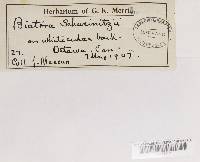 Herbarium of G. K. Merrill
Biatora Schweinitzii
on white cedar bark
27. Ottawa, Can.
Coll. J. Macoun 7 May 1907